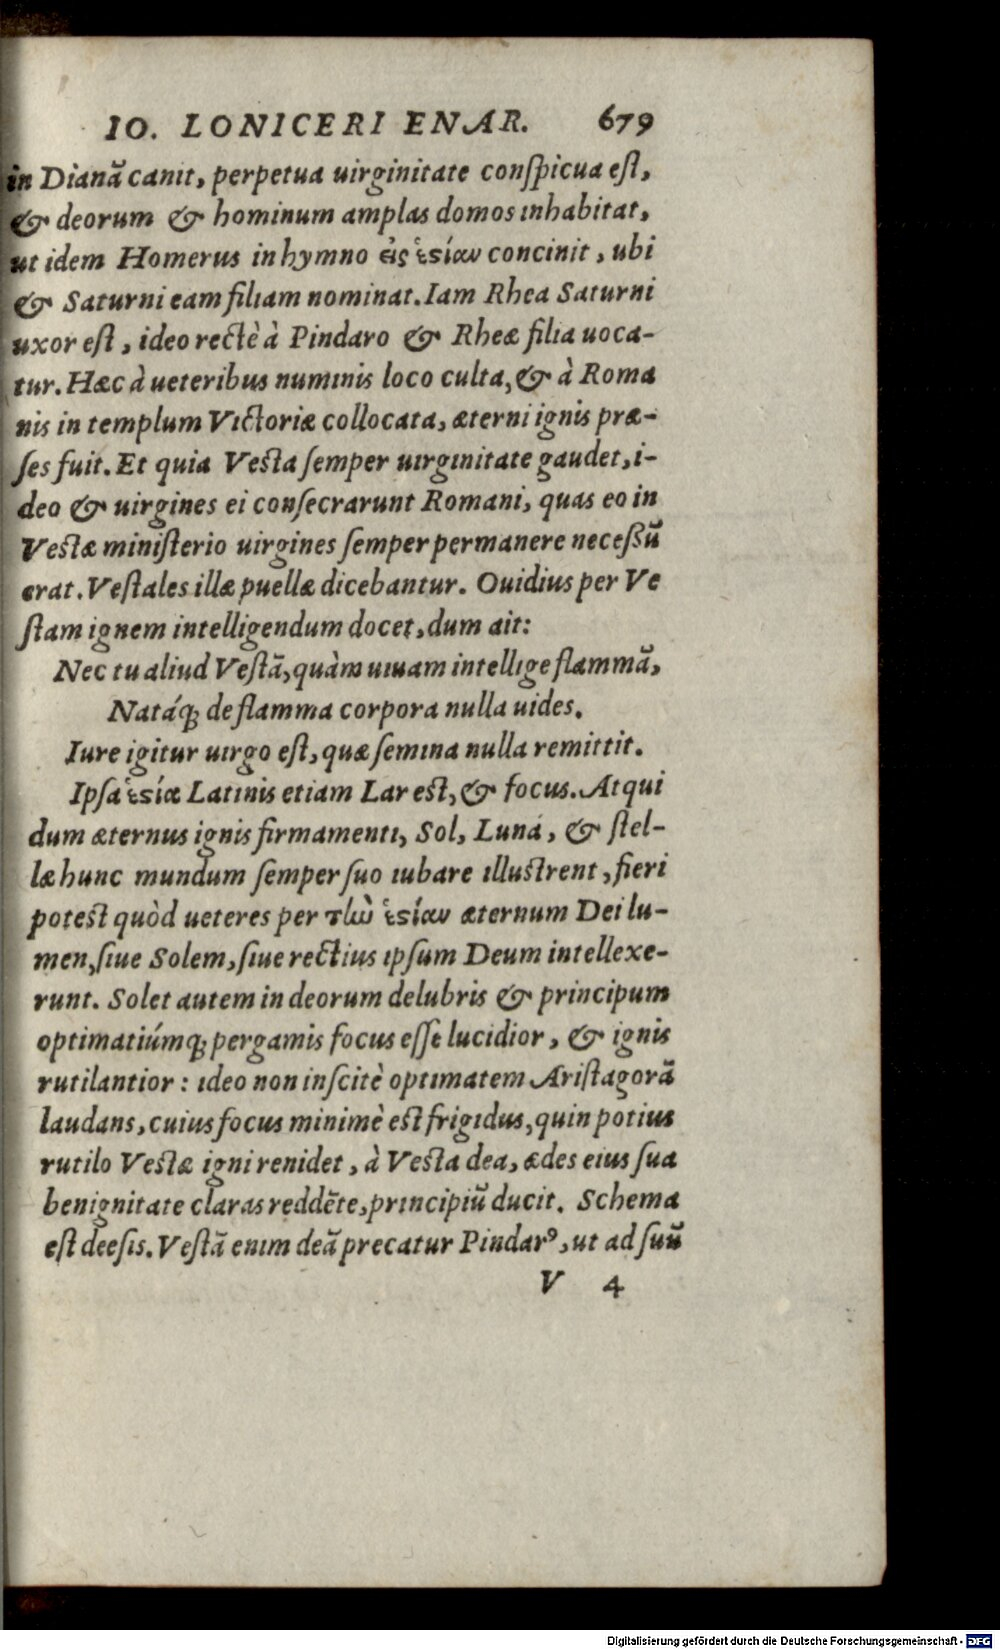 IO. LONICERI ENAR. 679
in Dianã canit, perpetua uirginitate conſpicua eſt,
& deorum & hominum amplas domos inhabitat,
ut idem Homerus in hymno εἰς ἑστίαν concinit, ubi
& Saturni eam filiam nominat. Iam Rhea Saturni
uxor est, ideo rectè à Pindaro & Rheæ filia uoca-
tur. Hæc à ueteribus numinis loco culta, & à Roma
nis in templum Victoriæ collocata, æterni ignis præ-
ſes fuit. Et quia Vesta ſemper uirginitate gaudet, i-
deo & uirgines ei conſecrarunt Romani, quas eo in
Vestæ miniſterio uirgines ſemper permanere neceßũ
erat. Veſtales illæ puellæ dicebantur. Ouidius per Ve
ſtam ignem intelligendum docet, dum ait:
Nec tu aliud Veſtã, quàm uiuam intellige flammã,
Natáq; de flamma corpora nulla uides.
Iure igitur uirgo eſt, quæ ſemina nulla remittit.
Ipſa ἑστία Latinis etiam Lar est, & focus. Atqui
dum æternus ignis firmamenti, Sol, Luna, & ſtel-
læ hunc mundum ſemper ſuo iubare illustrent, fieri
potest quòd ueteres per τlὼ ἑστίαν æternum Dei lu-
men, ſiue Solem, ſiue rectius ipſum Deum intellexe-
runt. Solet autem in deorum delubris & principum
optimatiúmq; pergamis focus eſſe lucidior, & ignis
rutilantior: ideo non inſcitè optimatem Ariſtagorã
laudans, cuius focus minimè est frigidus, quin potius
rutilo Vestæ igni renidet, à Vesta dea, ædes eius ſua
benignitate claras reddẽte, principiũ ducit. Schema
eſt deeſis. Veſtã enim deã precatur Pindarꝰ, ut ad ſuũ
V 4
Digitalisierung gefördert durch die Deutsche Forschungsgemeinschaft - DFG